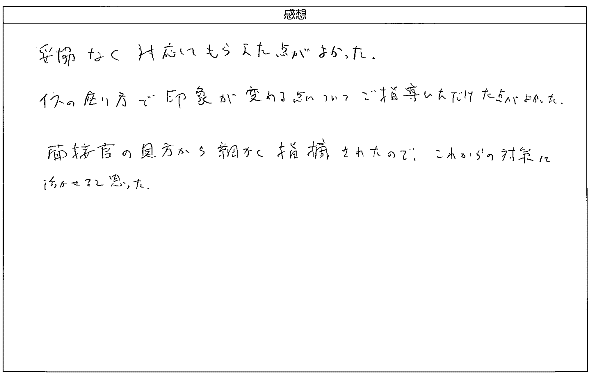 感想
妥協なく対応してもらえた点がよかった.
イスの座り方で印象が変わる点についてご指導いただけた点がよかった.
面接官の見方から細かく指摘されたので, これからの対策に
活かせると思った.